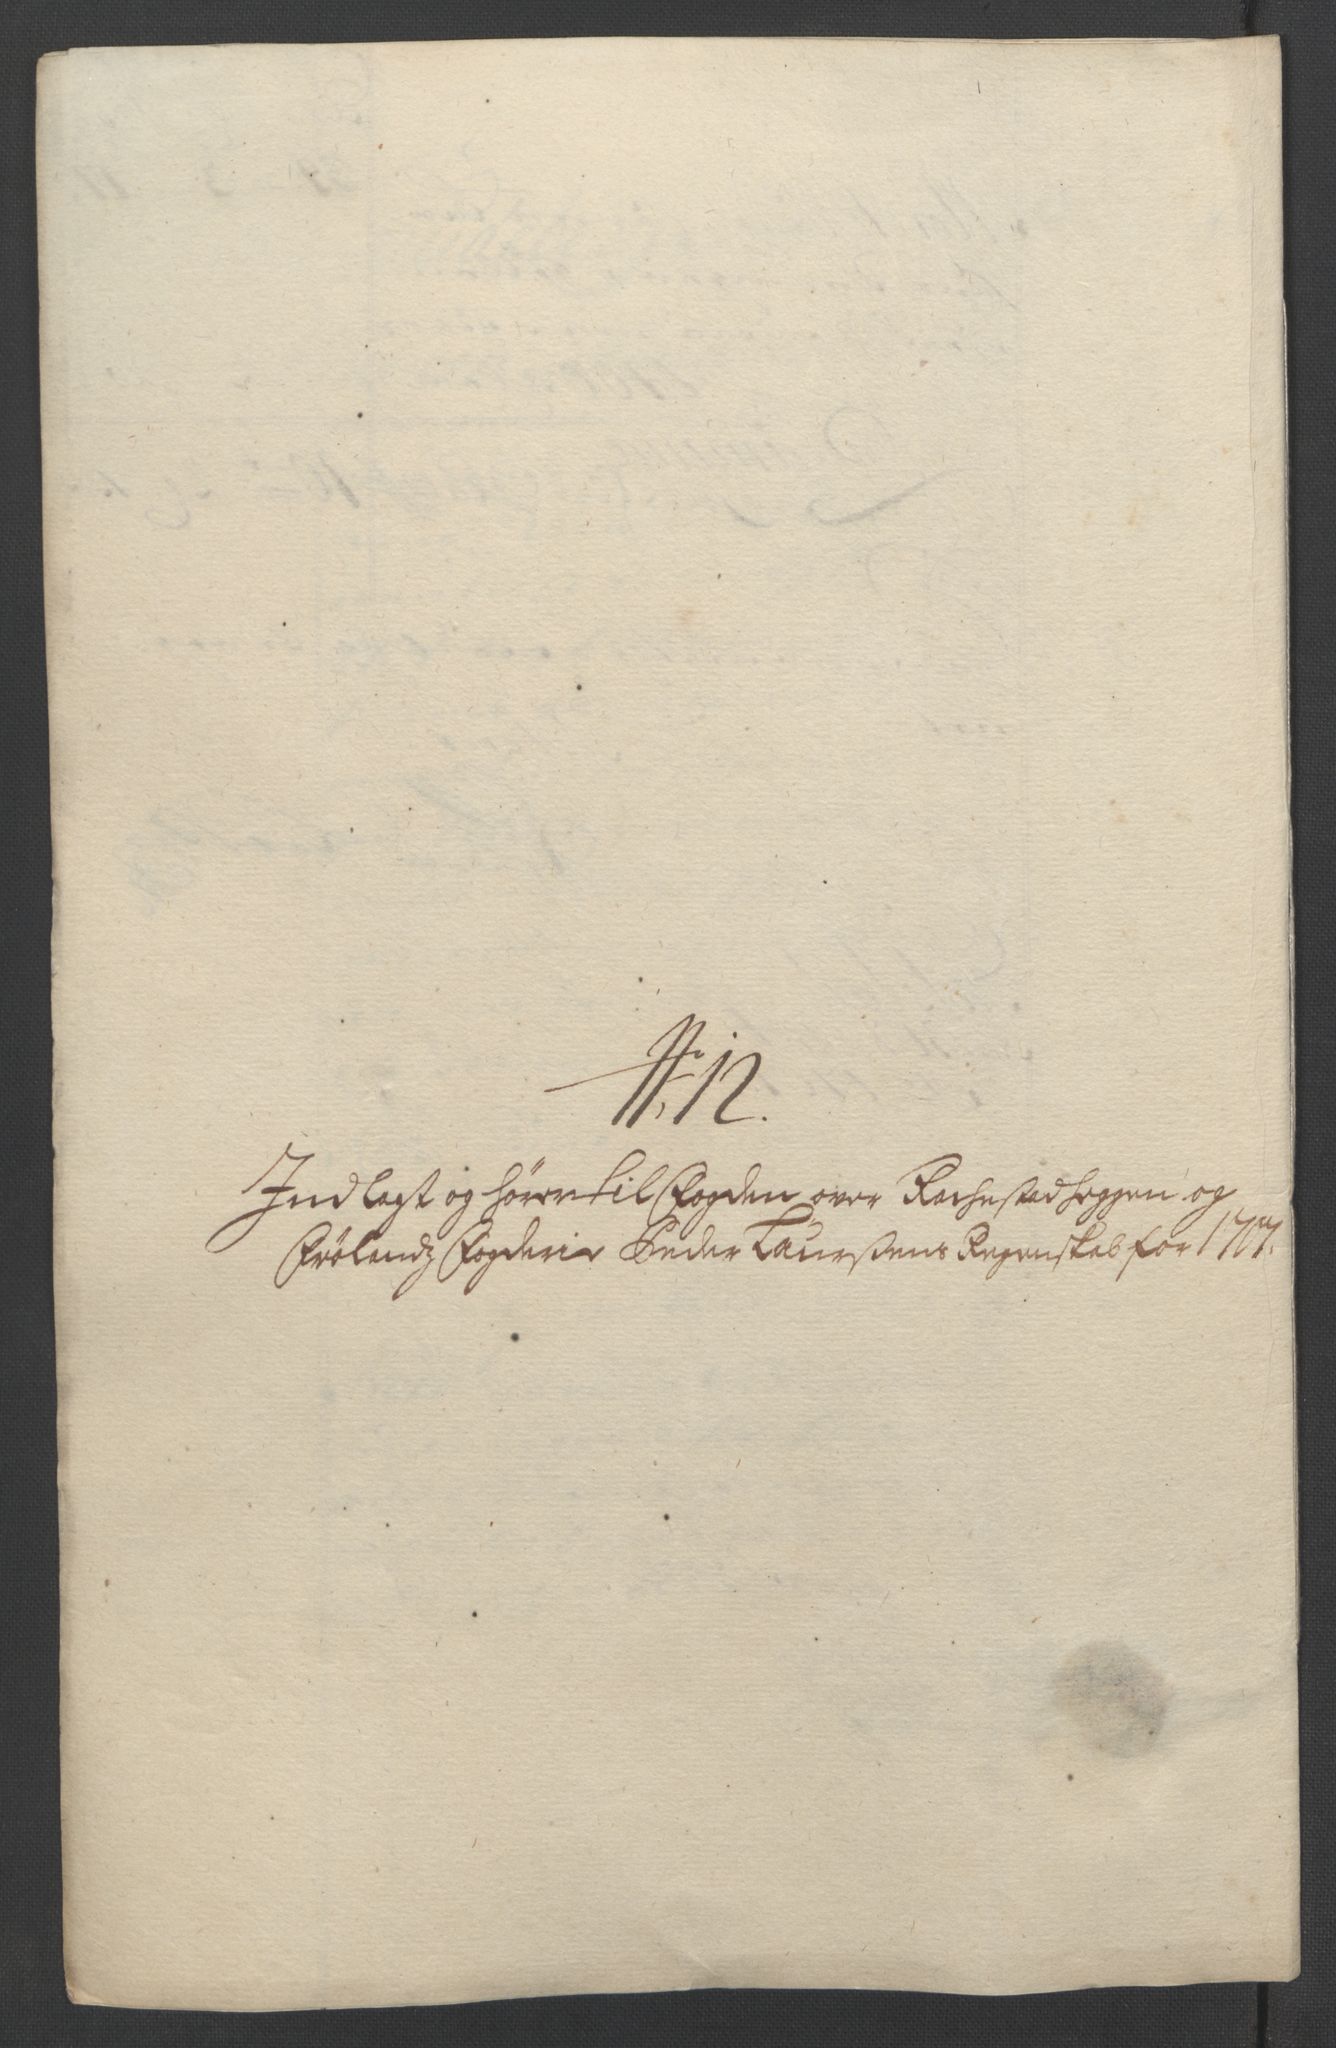 N: 12.
Indlagt og hörer til Fogden over Rachestad Heggen og
Frölandz Fogderie Peder Laurßens Regenskab for 1707.